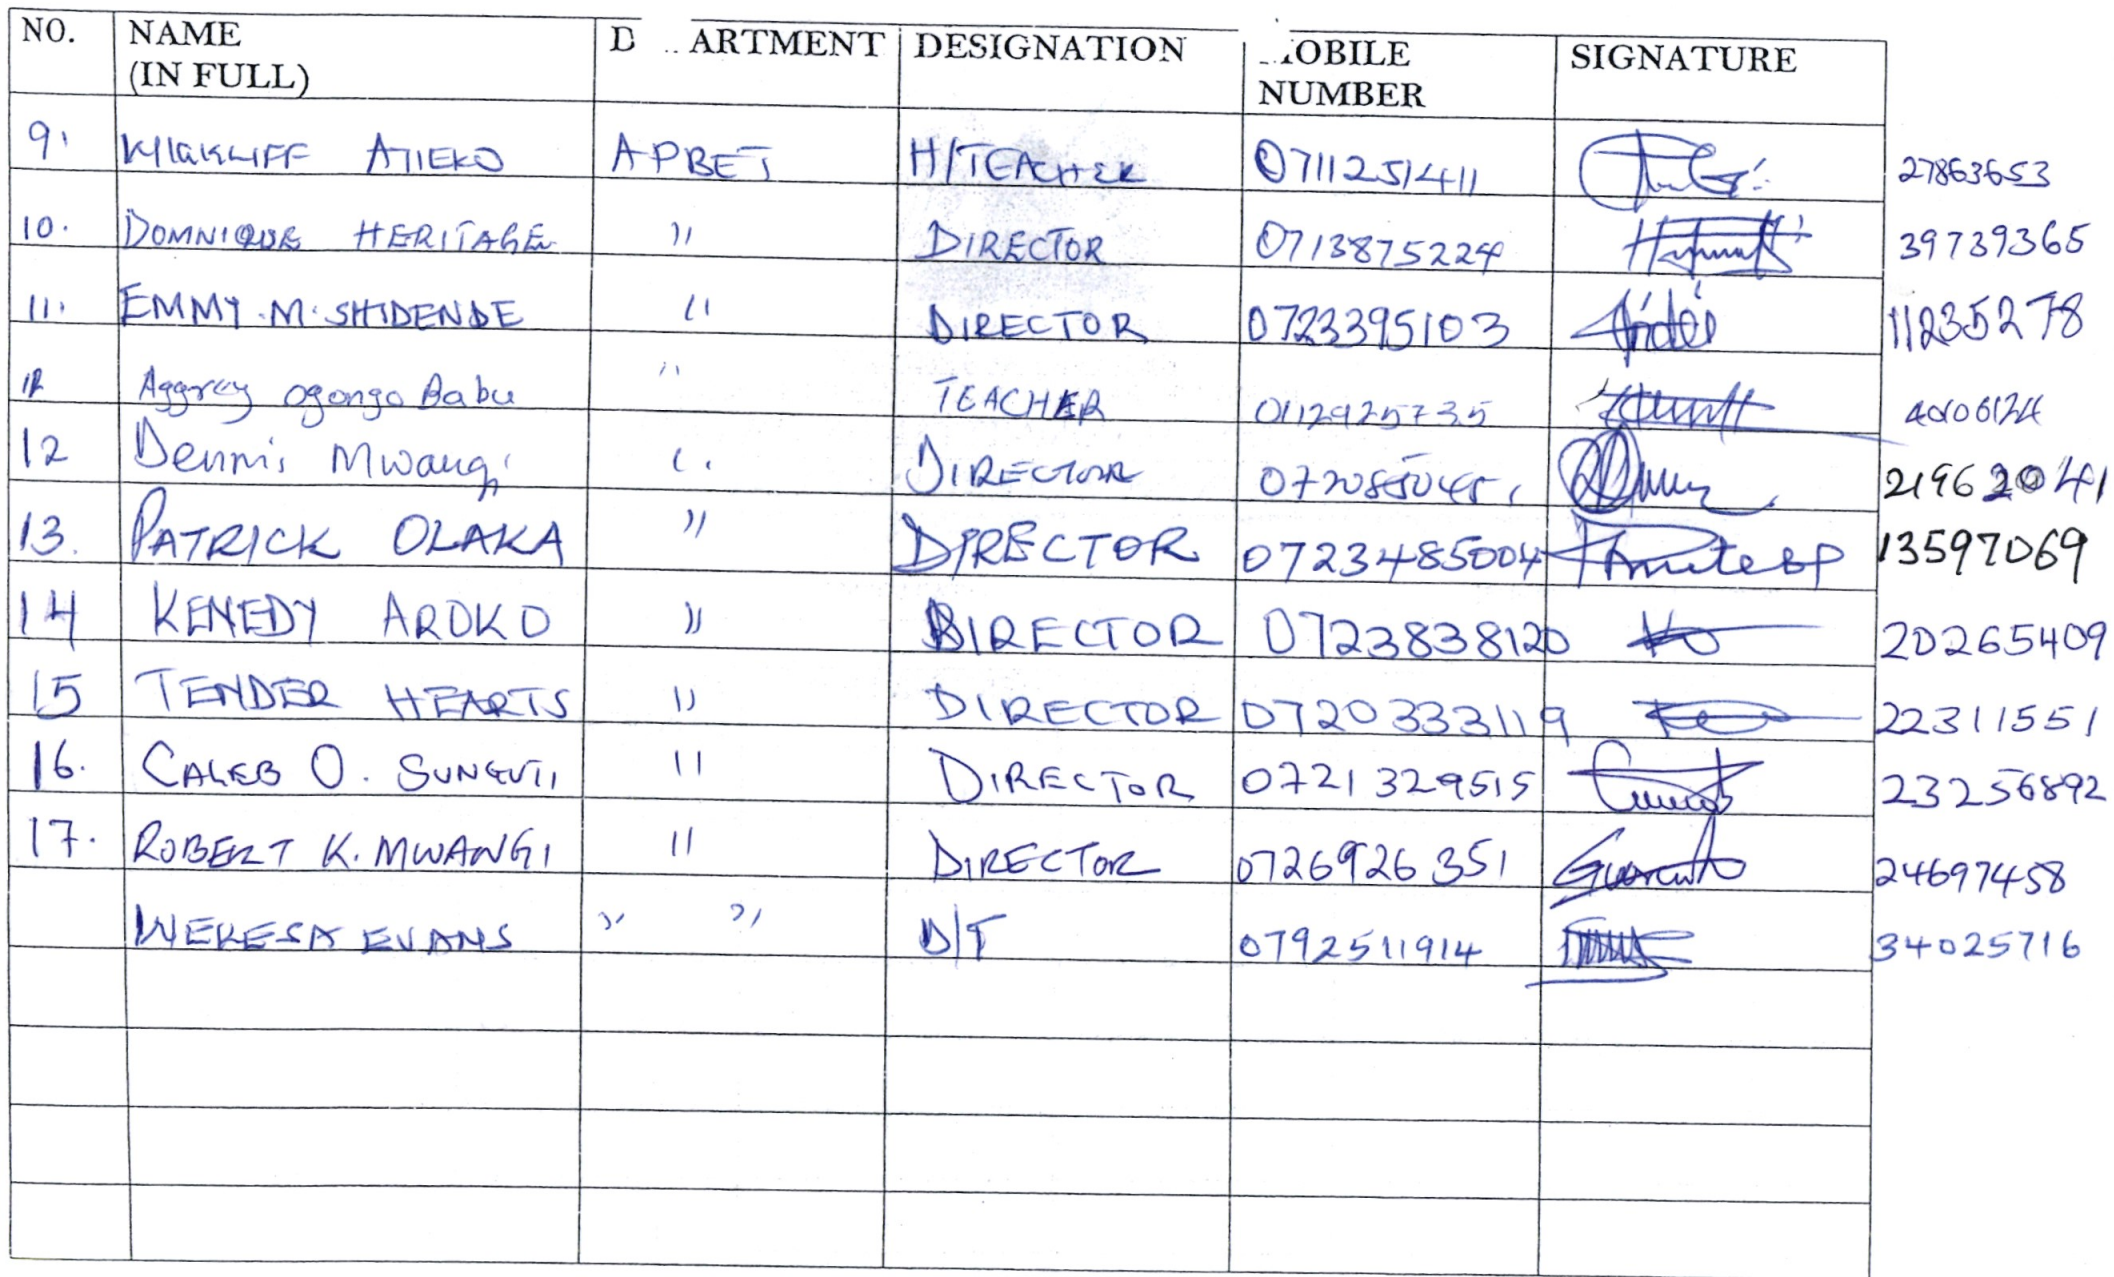 NO. NAME (IN FULL) D ARTMENT DESIGNATION OBILE NUMBER SIGNATURE
9. ATIEKO APBET H/TEACHER 0711251411 27863653
10. DOMNIQUE HERITAGE " DIRECTOR 0713875224 39739365
11. EMMY M. SHIDENDE " DIRECTOR 0723395103 11235278
Aggrey Ogongo Babu " TEACHER 0112925735
12 Dennis Mwangi " DIRECTOR 21962041
13. PATRICK OLAKA " DIRECTOR 0723485004 13597069
14 KENEDY AROKO " DIRECTOR 0723838120 20265409
15 TENDER HEARTS " DIRECTOR 0720333119 22311551
16. CALEB O. SUNGUTI " DIRECTOR 0721329515 23256892
17. ROBERT K. MWANGI " DIRECTOR 0726926351 24697458
WEKESA EVANS " " D/T 0792511914 34025716